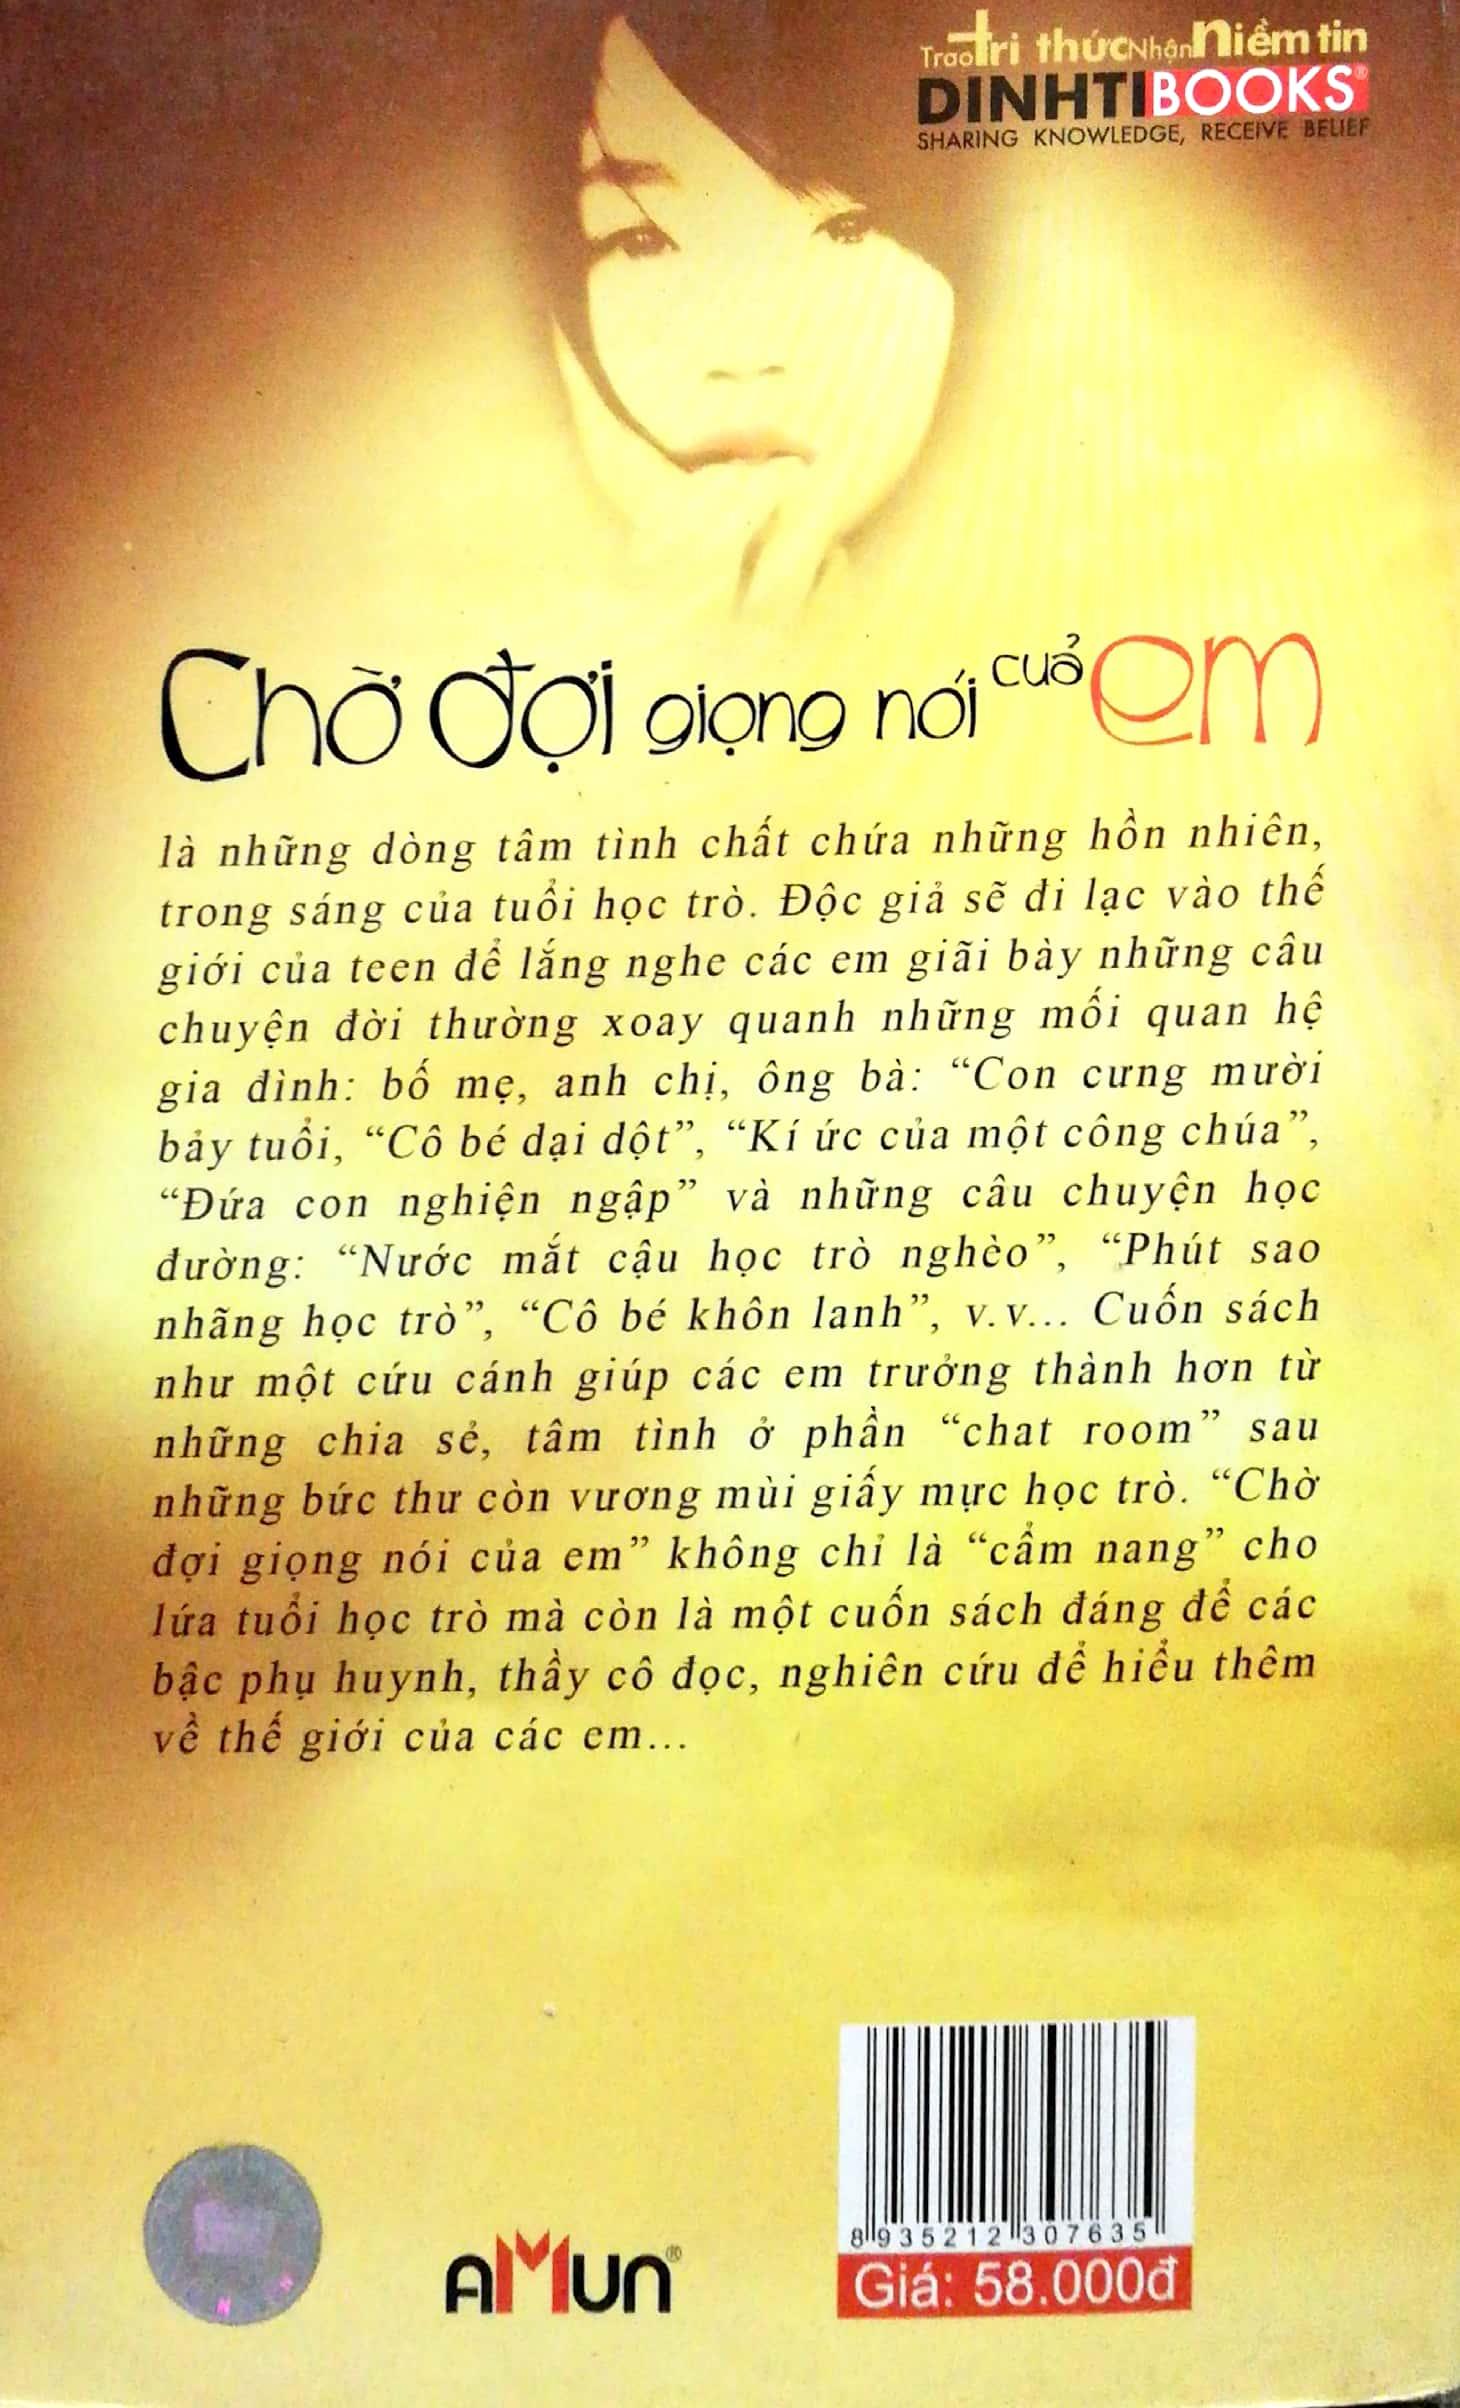 Trao tri thức Nhận niềm tin
DINHTIBOOKS®
SHARING KNOWLEDGE, RECEIVE BELIEF
Chờ đợi giọng nói cuả em
là những dòng tâm tình chất chứa những hồn nhiên,
trong sáng của tuổi học trò. Độc giả sẽ đi lạc vào thế
giới của teen để lắng nghe các em giãi bày những câu
chuyện đời thường xoay quanh những mối quan hệ
gia đình: bố mẹ, anh chị, ông bà: “Con cưng mười
bảy tuổi, “Cô bé dại dột”, “Kí ức của một công chúa”,
“Đứa con nghiện ngập” và những câu chuyện học
đường: “Nước mắt cậu học trò nghèo”, “Phút sao
nhãng học trò”, “Cô bé khôn lanh”, v.v... Cuốn sách
như một cứu cánh giúp các em trưởng thành hơn từ
những chia sẻ, tâm tình ở phần “chat room” sau
những bức thư còn vương mùi giấy mực học trò. “Chờ
đợi giọng nói của em” không chỉ là “cẩm nang” cho
lứa tuổi học trò mà còn là một cuốn sách đáng để các
bậc phụ huynh, thầy cô đọc, nghiên cứu để hiểu thêm
về thế giới của các em...
8 935212 307635
Giá: 58.000đ
AMUN®